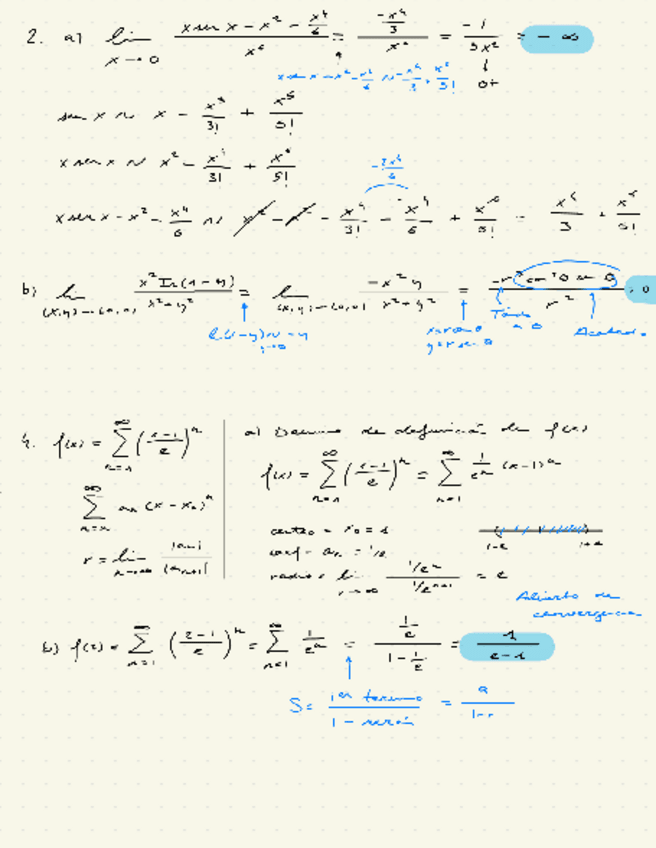 2. a) lim x→0 (x sen x − x² − x⁴/6) / x⁶ = (−x⁴/3) / x⁶ = −1 / 3x² = −∞
↓ 0+
sen x ~ x − x³/3! + x⁵/5!
x sen x ~ x² − x⁴/3! + x⁶/5!
−2x⁴/6
x sen x − x² − x⁴/6 ~ x² − x² − x⁴/3! − x⁴/6 + x⁶/5! − x⁴/3 + x⁶/5!
b) lim (x,y)→(0,0) x² ln(1−y) / (x²+y²) = lim (x,y)→(0,0) −x²y / (x²+y²) = −r³ cos²θ sen θ / r² = 0
ln(1−y) ~ −y
y→0
x = r cos θ
y = r sen θ
Tiende a 0
Acotado
4. f(x) = ∑ n=1 ∞ ((x−1)/e)ⁿ
∑ n=1 ∞ aₙ (x − x₀)ⁿ
r = lim n→∞ |aₙ| / |aₙ₊₁|
a) Dominio de definición de f(x)
f(x) = ∑ n=1 ∞ ((x−1)/e)ⁿ = ∑ n=1 ∞ 1/eⁿ (x−1)ⁿ
centro = x₀ = 1
1−e 1+e
coef = aₙ = 1/e
radio = lim n→∞ (1/eⁿ) / (1/eⁿ⁺¹) = e
Abierto de convergencia
b) f(2) = ∑ n=1 ∞ ((2−1)/e)ⁿ = ∑ n=1 ∞ 1/eⁿ = (1/e) / (1 − 1/e) = 1 / (e−1)
S = 1er termino / (1 − razón) = a / (1−r)